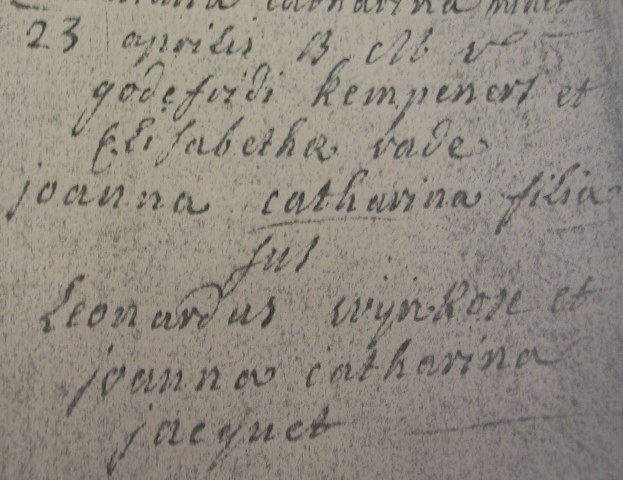 catharina
23 aprilis B
godefridi kempeners et
Elisabetha vade
joanna catharina filia
sus
Leonardus wijnkose et
joanna catharina
jacquet